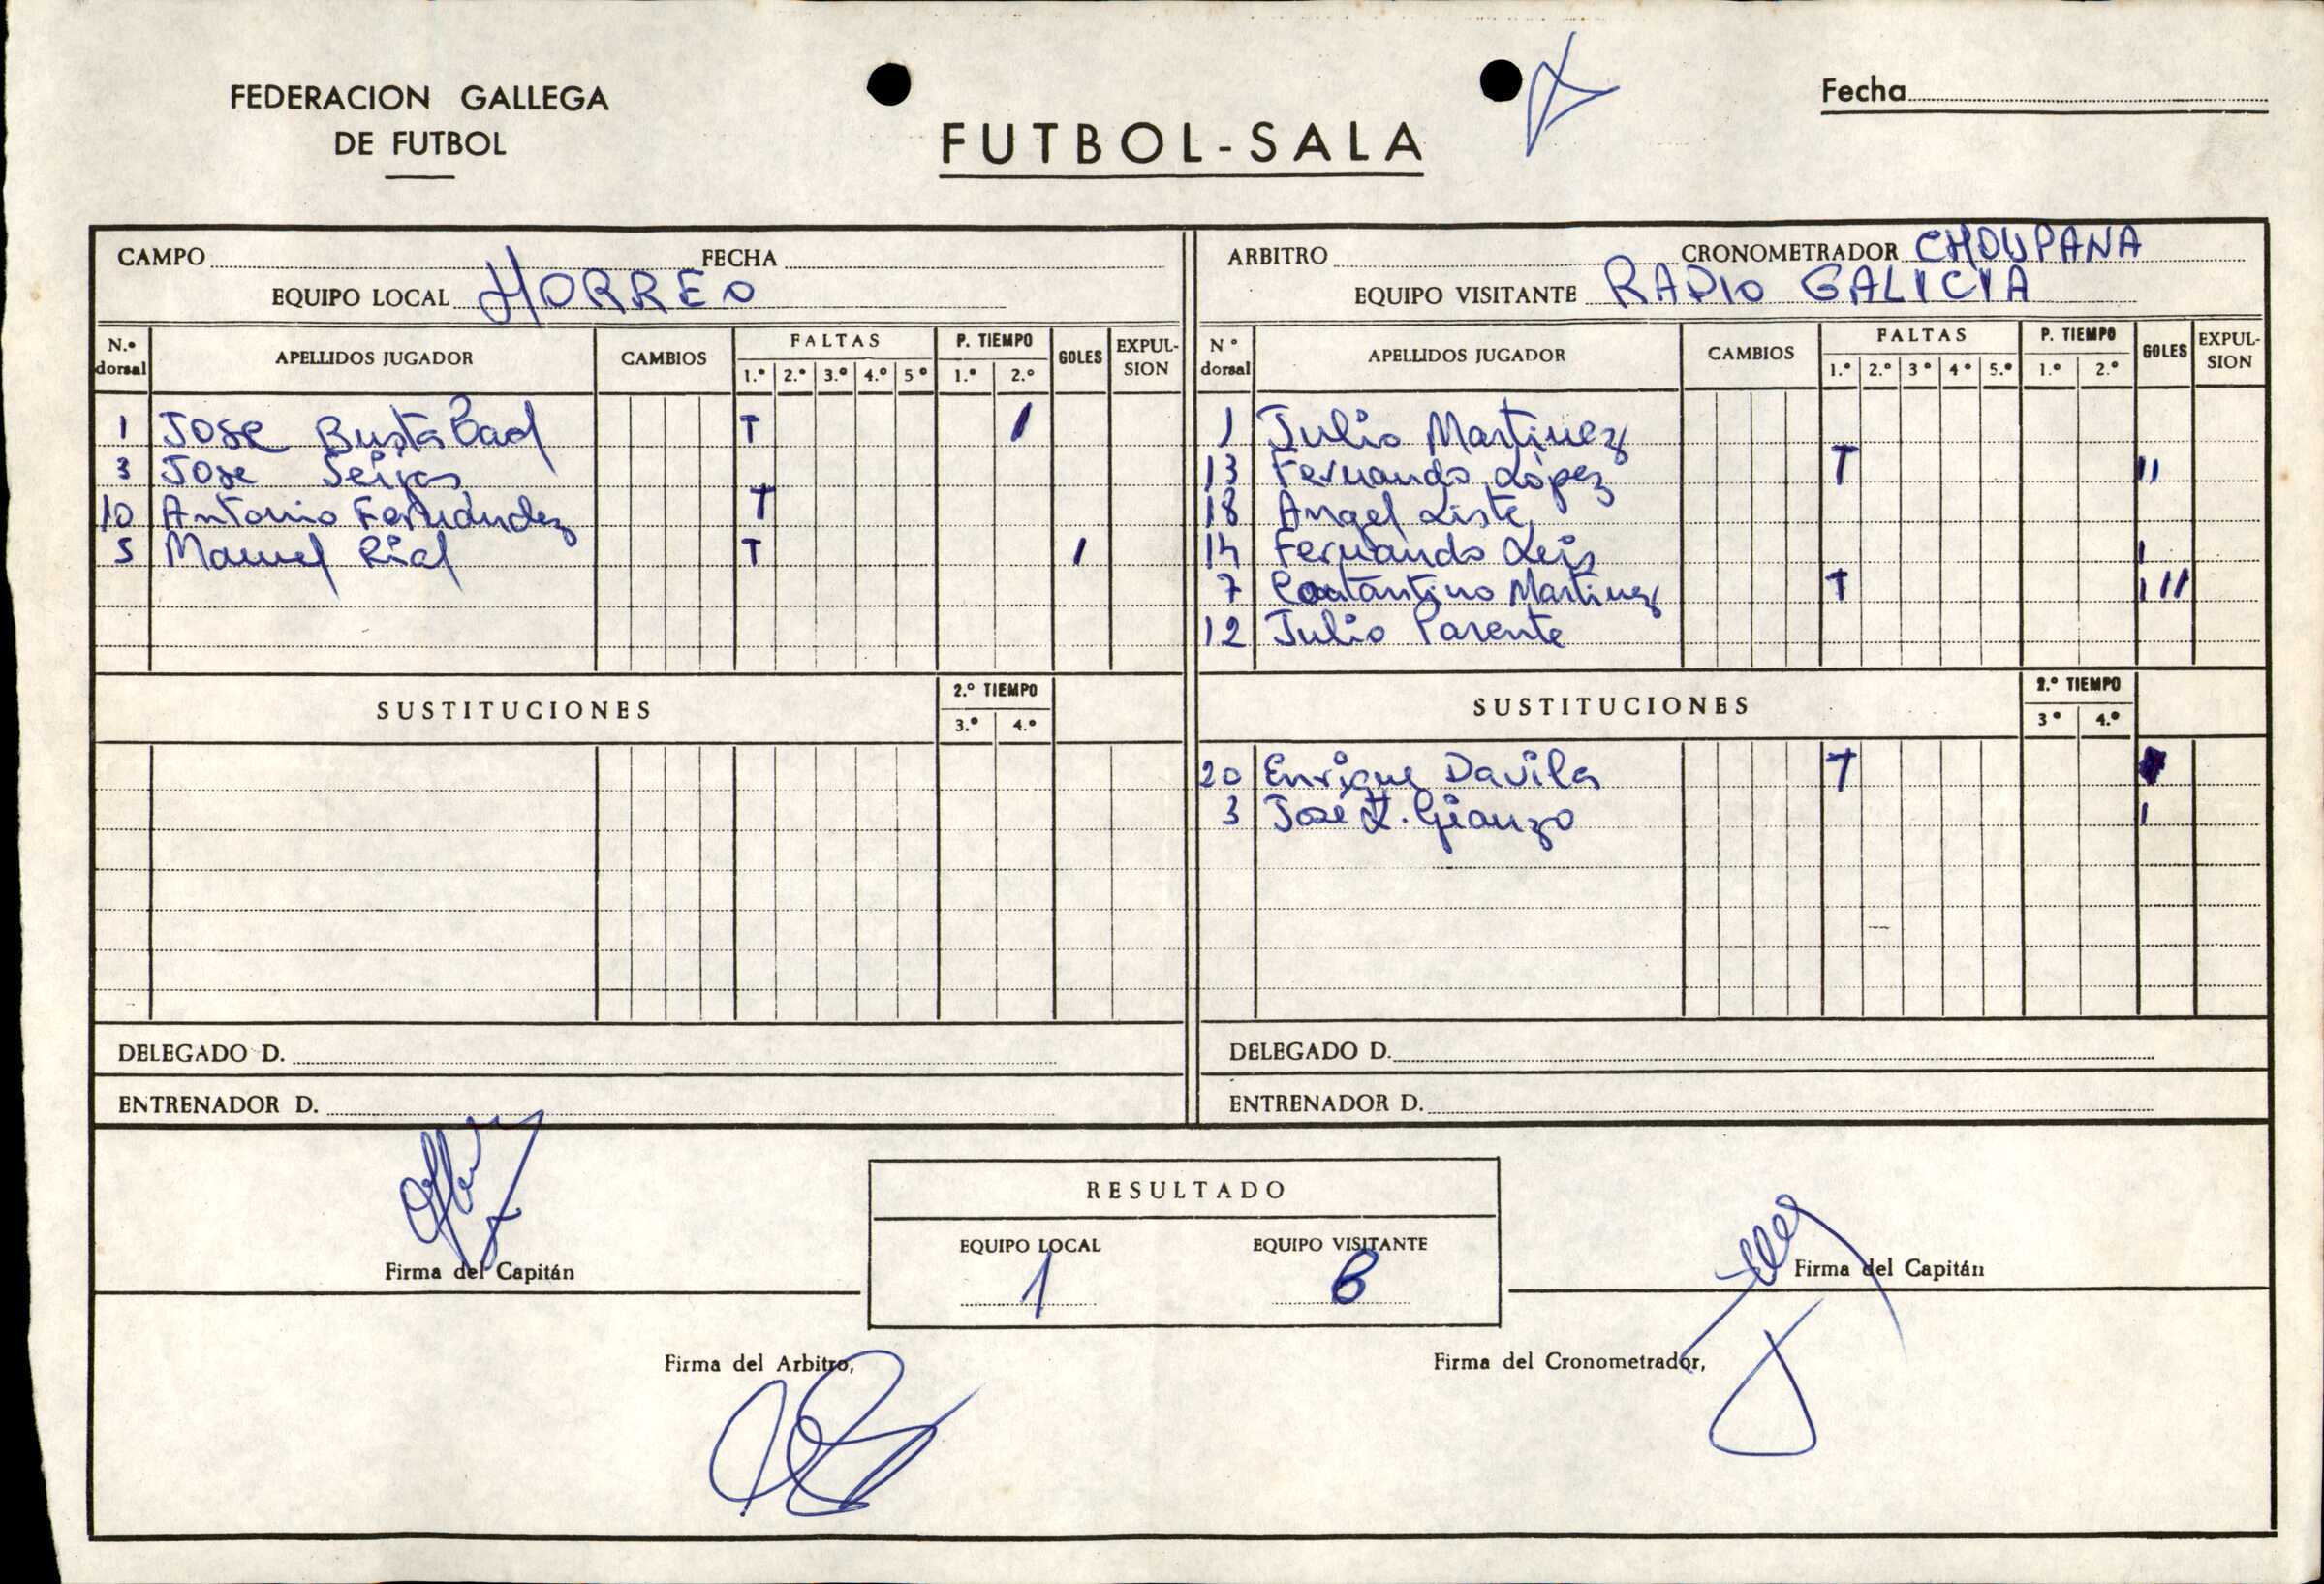 FEDERACION GALLEGA
DE FUTBOL
FUTBOL-SALA
Fecha
CAMPO FECHA
EQUIPO LOCAL HORREO
N.º dorsal APELLIDOS JUGADOR CAMBIOS FALTAS P. TIEMPO GOLES EXPUL-SION
1.º 2.º 3.º 4.º 5º 1.º 2.º
1 Jose Bustabad T I
3 Jose Seijas
10 Antonio Fernández T
5 Manuel Rial T I
SUSTITUCIONES 2.º TIEMPO
3.º 4.º
DELEGADO D.
ENTRENADOR D.
ARBITRO CRONOMETRADOR CHOUPANA
EQUIPO VISITANTE RADIO GALICIA
Nº dorsal APELLIDOS JUGADOR CAMBIOS FALTAS P. TIEMPO GOLES EXPUL-SION
1.º 2.º 3º 4º 5.º 1.º 2.º
1 Julio Martinez
13 Fernando López T II
18 Angel Liste
14 Fernando Leis I
7 Martinez T III
12 Julio Parente
SUSTITUCIONES 2.º TIEMPO
3º 4.º
20 Enrique Davila T
3 José Gianzo I
DELEGADO D.
ENTRENADOR D.
RESULTADO
EQUIPO LOCAL EQUIPO VISITANTE
1 6
Firma del Capitán
Firma del Capitán
Firma del Arbitro,
Firma del Cronometrador,